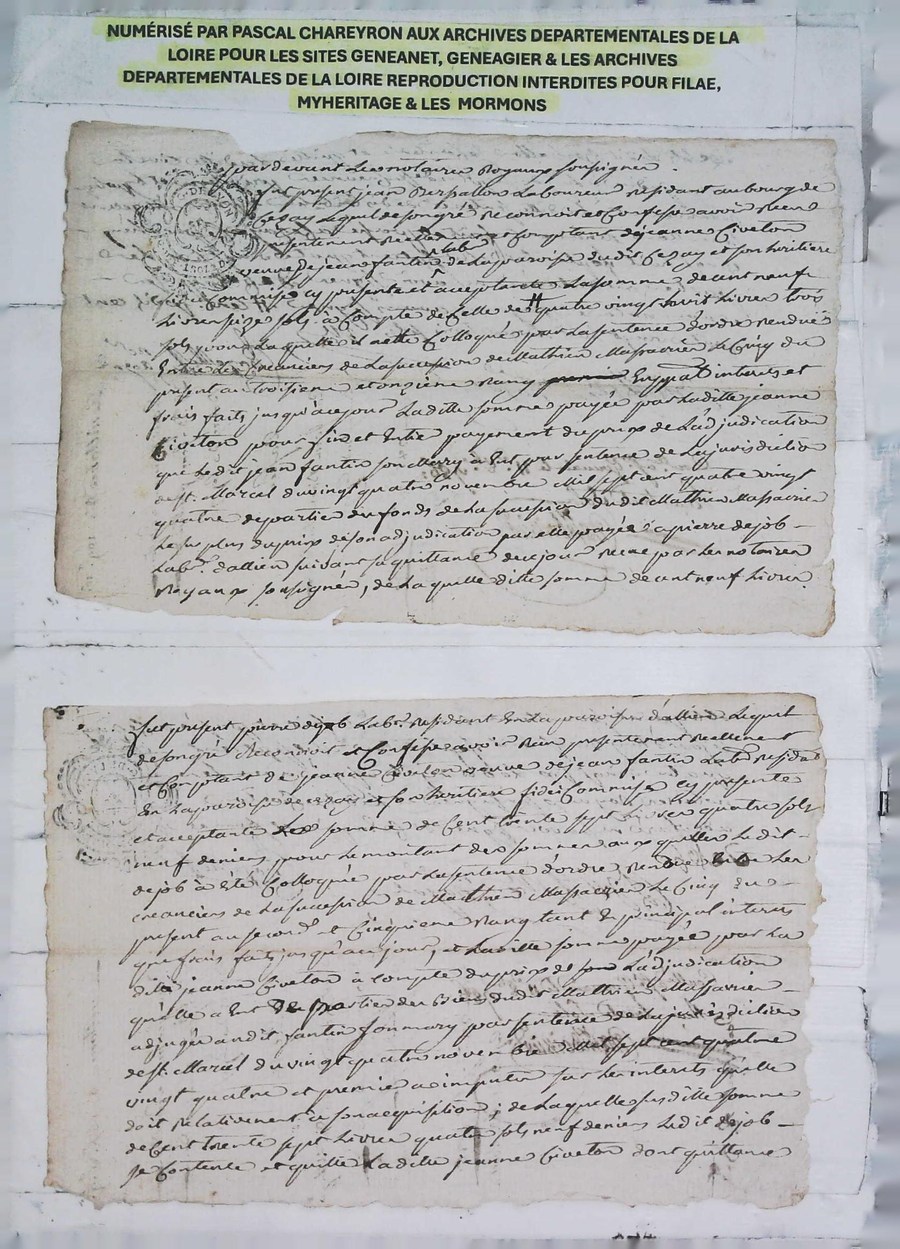 NUMÉRISÉ PAR PASCAL CHAREYRON AUX ARCHIVES DEPARTEMENTALES DE LA
LOIRE POUR LES SITES GENEANET, GENEAGIER & LES ARCHIVES
DEPARTEMENTALES DE LA LOIRE REPRODUCTION INTERDITES POUR FILAE,
MYHERITAGE & LES MORMONS
par devant Les notaires Royaux soussignés
fut present jean Laboureur Residant au bourg de
Cezay Lequel de son gré Reconnoit et Confesse avoir Receu
presentement Reellement et Comptant de jeanne Civeton
veuve de jean fantin Lab. de La parroisse dudit Cezay et son heritiere
Commise cy presente et acceptante La somme de cent neuf
Livres seize sols à Compte de Celle de quatre vingt huit Livres trois
sols pour Laquelle il a etté Colloqué par La sentence d'ordre Rendue
Entre les Creanciers de La succession de Mathieu Massacrier Le Cinq du
present au troisieme et onzieme Rang Enprincipal interets et
frais faits jusqu'a ce jour Laditte somme payée par Laditte jeanne
Civeton pour fin et Entier payement du prix de L'adjudication
que Ledit jean fantin son Marry à Eut par sentence de La jurisdiction
de st. Marcel du vingt quatre novembre Mil sept cent quatre vingt
quatre de partie des fonds de La succession dudit Mathieu Massacrier
Le surplus du prix de son adjudication par elle payée a pierre dejob
Lab.r d'allieu suivant sa quittance de ce jour Receue par Les notaires
Royaux soussignés, de Laquelle ditte somme de cent neuf Livres
fut present pierre dejob Lab.r Residant En La parroisse d'allieu Lequel
de son gré Reconnoit et Confesse avoir Receu presentement Reellement
et Comptant de jeanne Civeton veuve de jean fantin Lab.r Residat
En La parroisse de cezay et son heritiere fidei Commise cy presente
et acceptante La somme de Cent trente sept Livres quatre sols
neuf deniers pour Le montant des sommes auxquelles Ledit
dejob à Eté Colloquée par La sentence d'ordre Rendue Entre Les
Creanciers de La succession de Mathieu Massacrier Le Cinq du
present au second et Cinquieme Rang tant En principal interets
que frais faits jusqu'au jour, et Laditte somme payée par La
ditte jeanne Civeton à compte du prix de L'adjudication
qu'elle a Eut de partie des Biens dudit Mathieu Massacrier
adjugée audit fantin son mary par sentence de La jurisdiction
de st. Marcel du vingt quatre novembre Mil sept cent quatre
vingt quatre et premier a imputer sur Les interets qu'elle
doit Relativement à son acquisition ; de Laquelle susditte somme
de Cent trente sept Livres quatre sols neuf deniers Ledit dejob
se Contente et quitte Laditte jeanne Civeton dont quittance